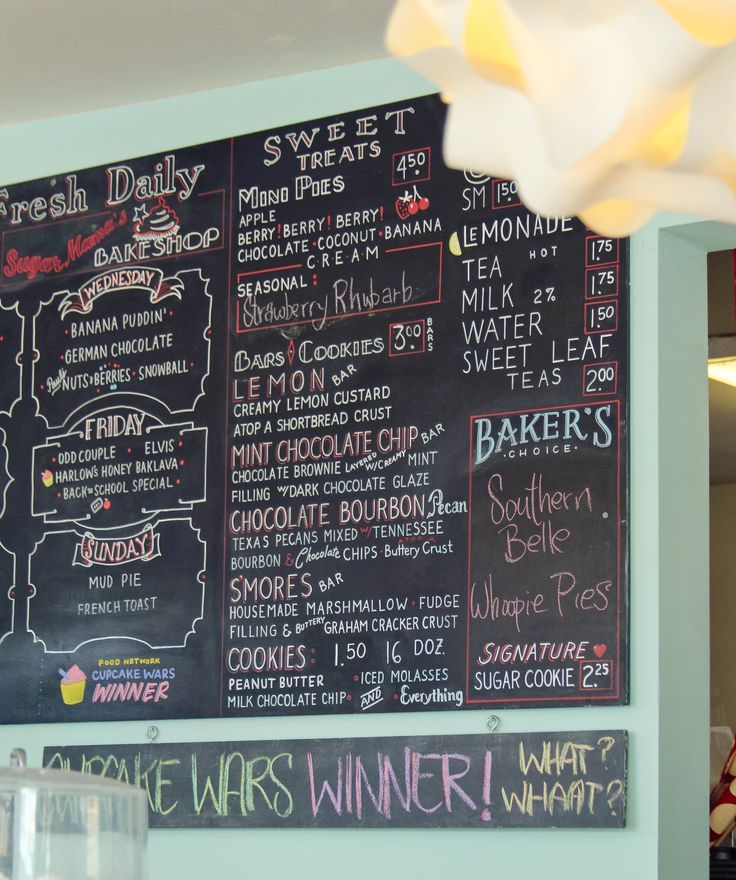 Fresh Daily
Sugar Mama's
BAKESHOP
WEDNESDAY
• BANANA PUDDIN' •
• GERMAN CHOCOLATE
NUTS • BERRIES • SNOWBALL •
FRIDAY
• ODD COUPLE • ELVIS
HARLOW'S HONEY BAKLAVA •
• BACK TO SCHOOL SPECIAL •
SUNDAY
MUD PIE
FRENCH TOAST
FOOD NETWORK
CUPCAKE WARS
WINNER
SWEET
TREATS
MINI PIES 4.50
APPLE
BERRY! BERRY! BERRY!
CHOCOLATE • COCONUT • BANANA
CREAM
SEASONAL:
Strawberry Rhubarb
BARS & COOKIES 3.00 BARS
LEMON BAR
CREAMY LEMON CUSTARD
ATOP A SHORTBREAD CRUST
MINT CHOCOLATE CHIP BAR
CHOCOLATE BROWNIE LAYERED W/CREAMY MINT
FILLING W/ DARK CHOCOLATE GLAZE
CHOCOLATE BOURBON Pecan
TEXAS PECANS MIXED W/ TENNESSEE
BOURBON & Chocolate CHIPS ATOP A Buttery Crust
S'MORES BAR
HOUSEMADE MARSHMALLOW • FUDGE
FILLING & BUTTERY GRAHAM CRACKER CRUST
COOKIES: 1.50 16 DOZ.
PEANUT BUTTER • ICED MOLASSES
MILK CHOCOLATE CHIP • AND • Everything
SM 1.50
LEMONADE
TEA HOT 1.75
MILK 2% 1.75
WATER 1.50
SWEET LEAF
TEAS 2.00
BAKER'S
• CHOICE •
Southern
Belle
Whoopie Pies
SIGNATURE
SUGAR COOKIE 2.25
CUPCAKE WARS WINNER! WHAT?
WHAAT?